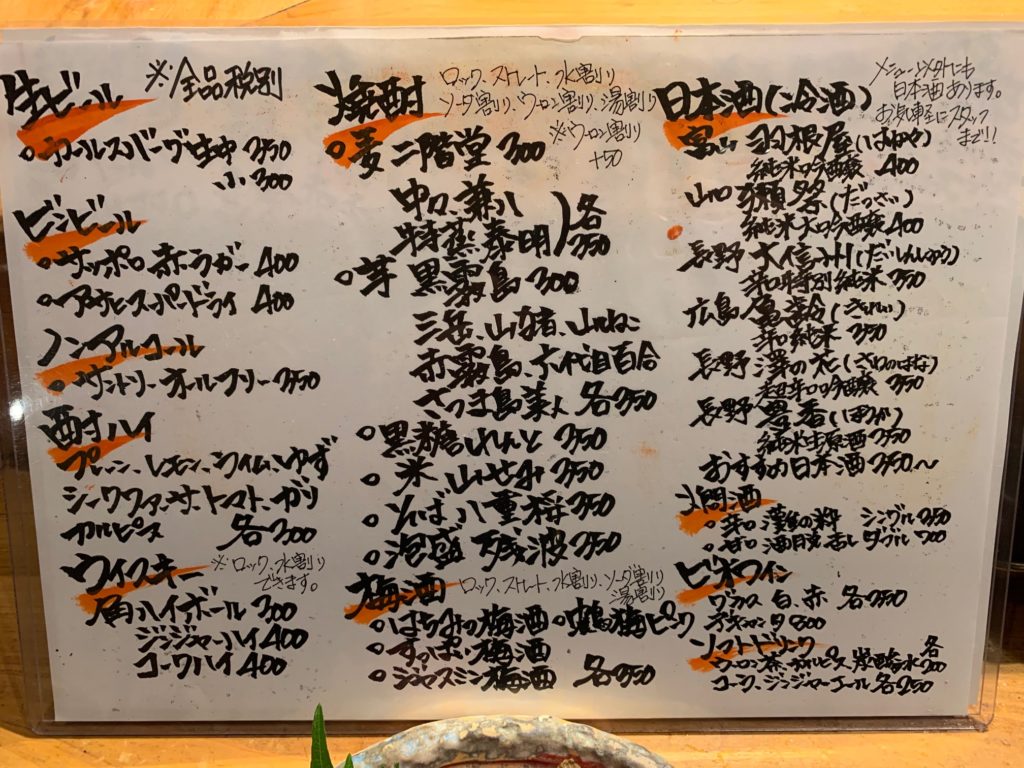 生ビール ※全品税別
パールスバーグ生中 350
小 300
ビンビール
サッポロ赤ラガー 400
アサヒスーパードライ 400
ノンアルコール
サントリーオールフリー 350
酎ハイ
プレーン、レモン、ライム、ゆず
シークワァーサ、トマト、ガリ
カルピス 各300
ウイスキー ※ロック、水割りできます。
角ハイボール 300
ジンジャーハイ 400
コークハイ 400
焼酎
ロック、ストレート、水割り
ソーダ割り、ウーロン割り、湯割り
※ウーロン割り
+50
麦 二階堂 300
中々、兼八
特蒸泰明 各350
芋 黒霧島 300
三岳、山猪、山ねこ
赤霧島、六代目百合
さつま島美人 各350
黒糖 れんと 350
米 山せみ 350
そば 八重桜 350
泡盛 残波 350
梅酒 ロック、ストレート、水割り、ソーダ割り
湯割り
はちみつ梅酒 鶴梅ピンク
すっぱい梅酒
ジャスミン梅酒 各350
日本酒(冷酒)
メニュー以外にも
日本酒あります。
お気軽にスタッフ
まで!!
富山 羽根屋(はねや)
純米吟醸 400
山口 獺祭(だっさい)
純米大吟醸 400
長野 大信州(だいしんしゅう)
辛口特別純米 350
広島 亀齢(きれい)
辛口純米 350
長野 澤の花(さわのはな)
超辛口吟醸 350
長野
純米生原酒 350
おすすめ日本酒 350~
燗酒
辛口 灘の粋 シングル 350
甘口 ダブル 700
ビオワイン
白、赤 各350
800
ソフトドリンク
ウーロン茶、カルピス、炭酸水 各200
コーラ、ジンジャーエール 各250